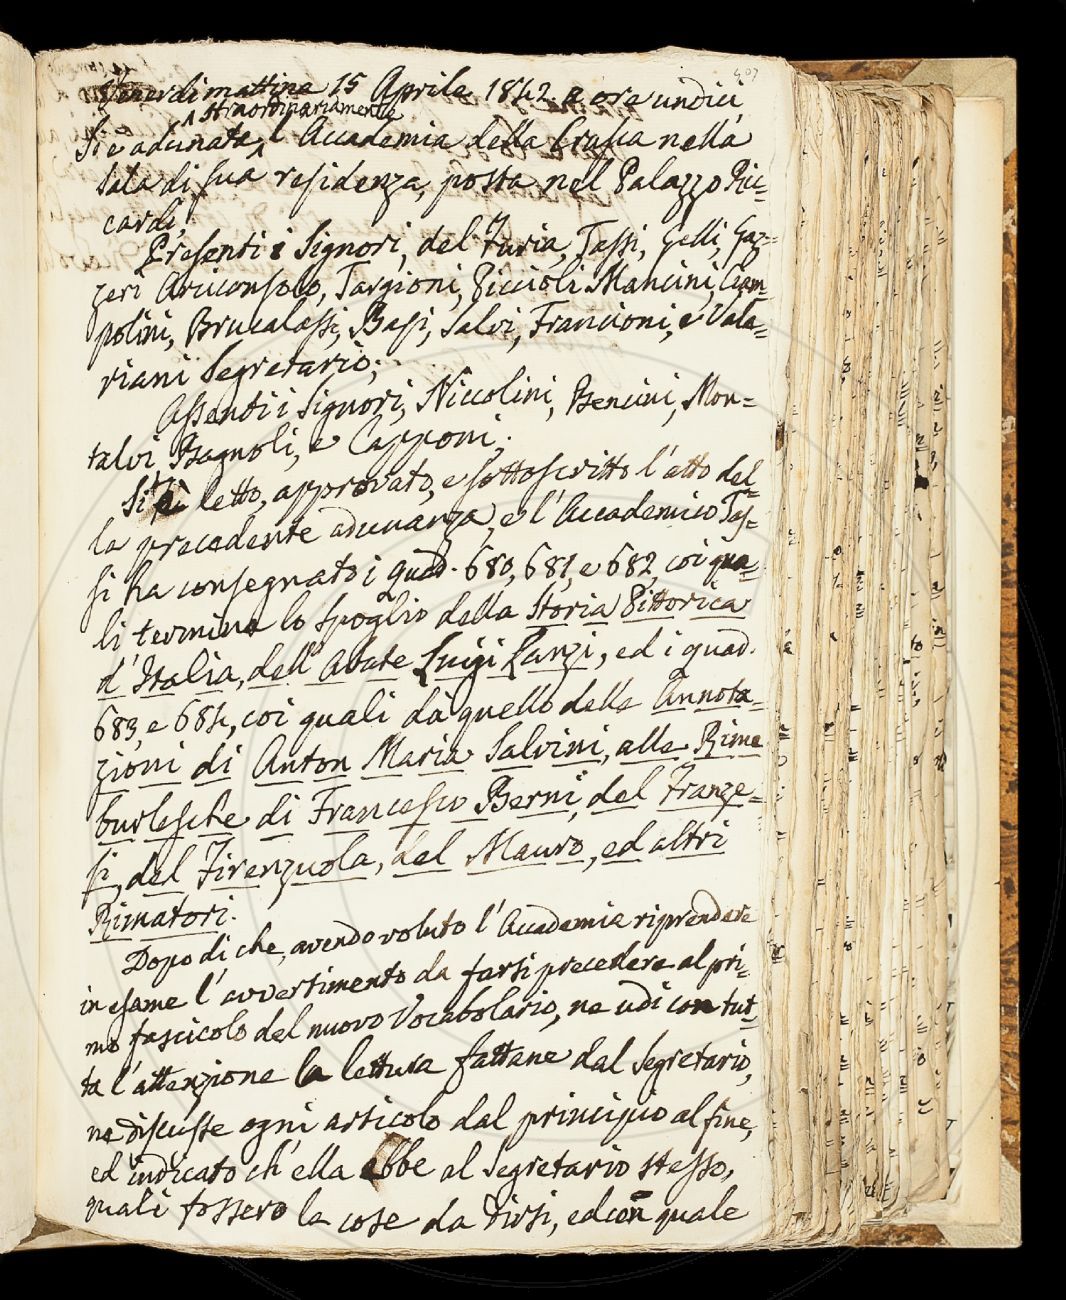 407
Venerdi mattina 15 Aprile 1842 a ore undici
straordinariamente
Si è adunata l'Accademia della Crusca nella
Sala di sua residenza, posta nel Palazzo Ric=
cardi.
Presenti i Signori, del Furia, Tassi, Gelli, Gaz=
zeri Arciconsolo, Targioni, Piccioli Mancini, Ciam=
polini, Brucalassi, Basi, Salvi, Francioni, e Vala=
riani Segretario;
Assenti i Signori, Niccolini, Bencini, Mon=
talvi Bagnoli, e Capponi.
Si è letto, approvato, e sottoscritto l'atto del=
la precedente adunanza, e l'Accademico Tas=
si ha consegnato i quad. 680, 681, e 682, coi qua=
li termina lo spoglio della Storia Pittorica
d'Italia, dell'Abate Luigi Lanzi, ed i quad.
683, e 684, coi quali dà quello delle Annota=
zioni di Anton Maria Salvini, alle Rime
burlesche di Francesco Berni, del Franze=
si, del Firenzuola, del Mauro, ed altri
Rimatori.
Dopo di che, avendo voluto l'Accademia riprendere
in esame l'avvertimento da farsi precedere al pri=
mo fascicolo del nuovo Vocabolario, ne udì con tut=
ta l'attenzione la lettura fattane dal Segretario,
ne discusse ogni articolo dal principio al fine,
ed indicato ch'ella ebbe al Segretario stesso,
quali fossero le cose da dirsi, ed con quale